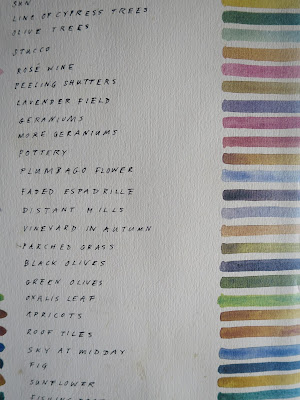 SUN
LINE OF CYPRESS TREES
OLIVE TREES
STUCCO
ROSÉ WINE
PEELING SHUTTERS
LAVENDER FIELD
GERANIUMS
MORE GERANIUMS
POTTERY
PLUMBAGO FLOWER
FADED ESPADRILLE
DISTANT HILLS
VINEYARD IN AUTUMN
PARCHED GRASS
BLACK OLIVES
GREEN OLIVES
OXALIS LEAF
APRICOTS
ROOF TILES
SKY AT MIDDAY
FIG
SUNFLOWER
FISHING